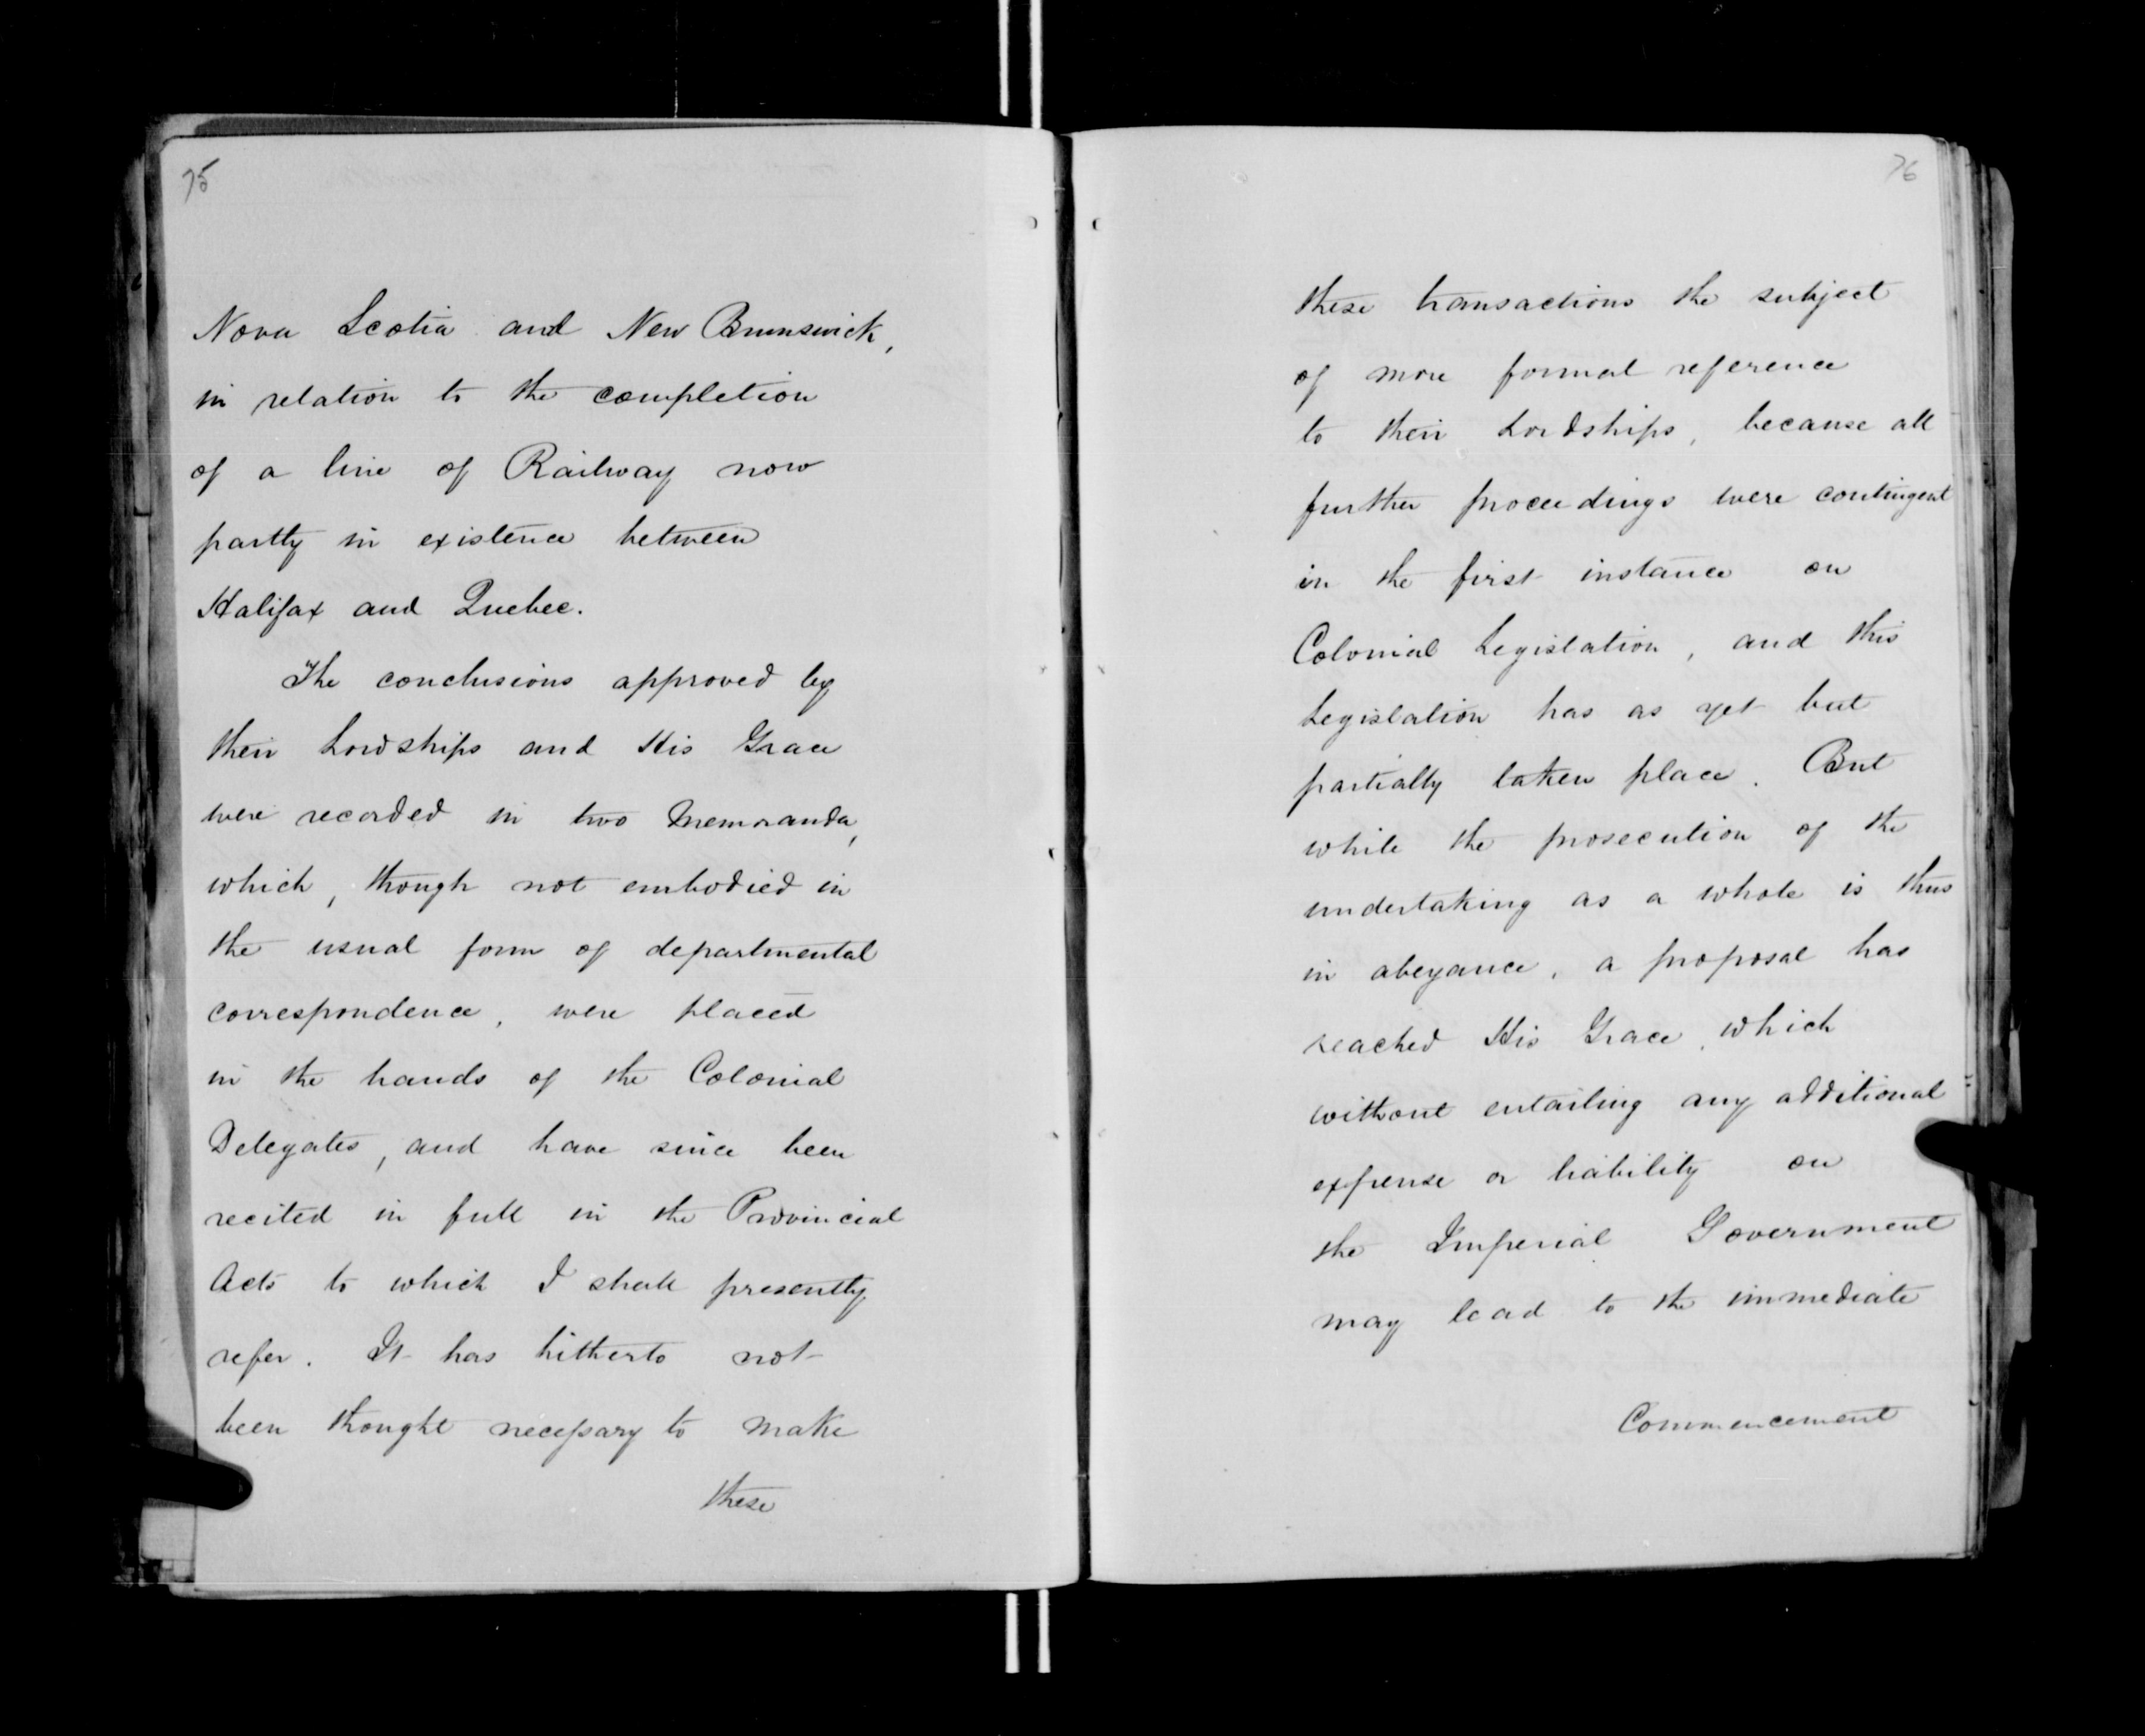 75
Nova Scotia and New Brunswick,
in relation to the completion
of a line of Railway now
partly in existence between
Halifax and Quebec.
The conclusions approved by
their Lordships and His Grace
were recorded in two Memoranda,
which, though not embodied in
the usual form of departmental
correspondence, were placed
in the hands of the Colonial
Delegates, and have since been
recited in full in the Provincial
Acts to which I shall presently
refer. It has hitherto not
been thought necessary to make
these
76
these transactions the subject
of more formal reference
to their Lordships, because all
further proceedings were contingent
in the first instance on
Colonial Legislation, and this
Legislation has as yet but
partially taken place. But
while the prosecution of the
undertaking as a whole is thus
in abeyance, a proposal has
reached His Grace, which
without entailing any additional
expense or liability on
the Imperial Government
may lead to the immediate
Commencement